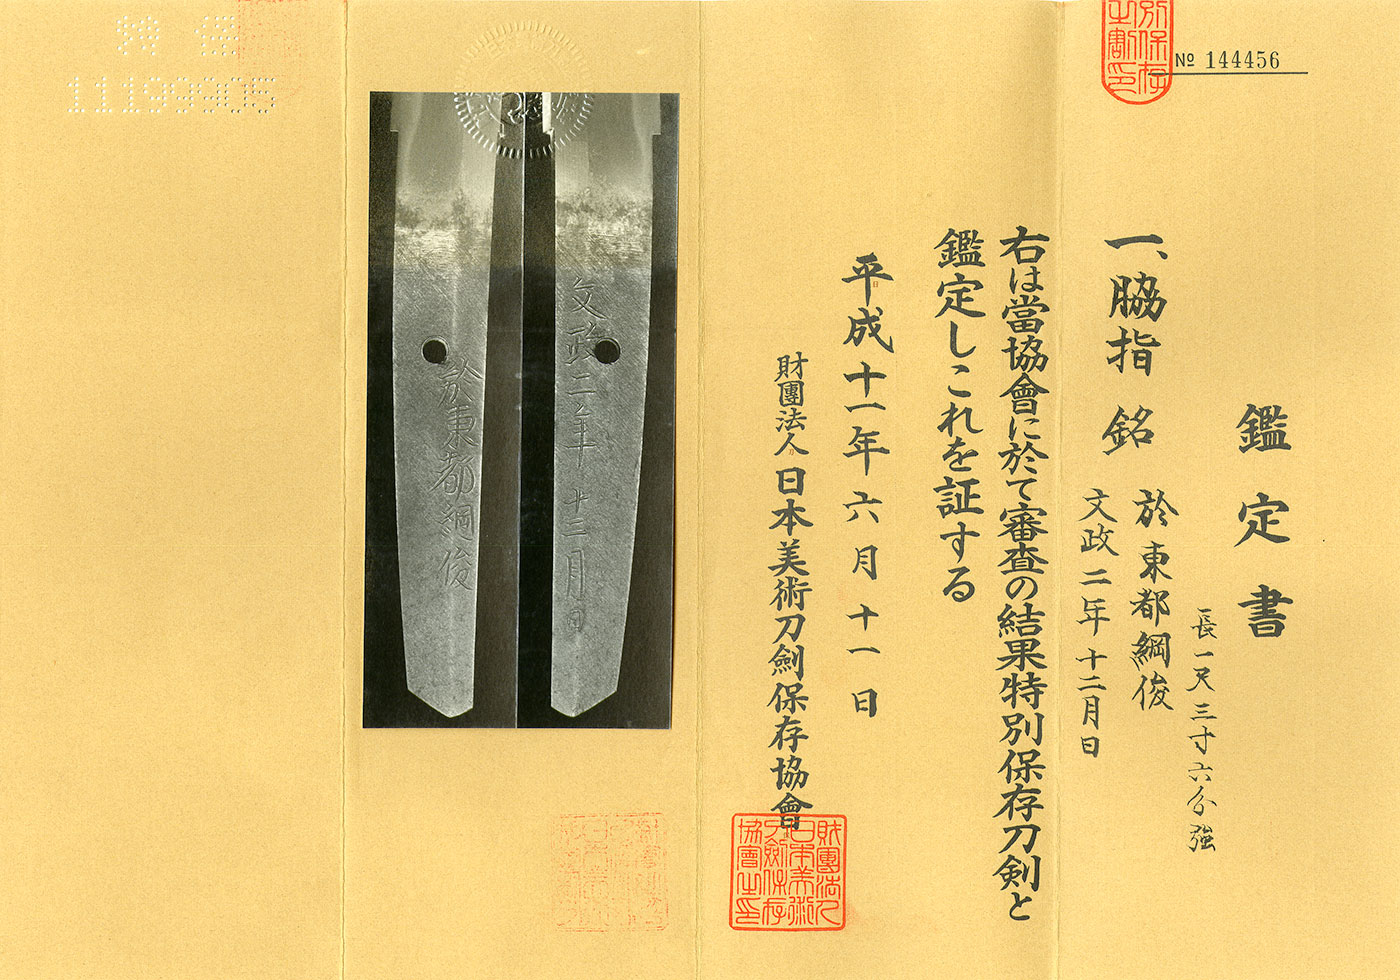 № 144456
鑑定書
一、脇指 銘 於東都綱俊
文政二年十二月日
長一尺三寸六分強
右は當協會に於て審査の結果特別保存刀剣と
鑑定しこれを証する
平成十一年六月十一日
財團法人日本美術刀劍保存協會
財團法人日本美術刀劍保存協會之印
文政二年十二月日
於東都綱俊
11199905